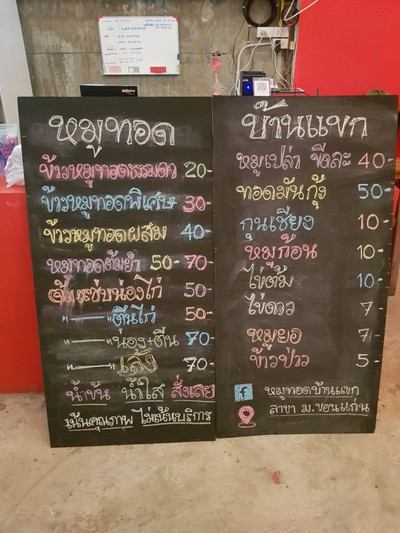 หมูทอด
ข้าวหมูทอดธรรมดา 20-
ข้าวหมูทอดพิเศษ 30-
ข้าวหมูทอดผสม 40-
หมูทอดต้มยำ 50-70-
50-
"——" ตีนไก่ 50-
"——" น่อง+ตีน 70-
"——" เล้ง 70-
น้ำข้น น้ำใส สั่งเลย
เน้นคุณภาพ ไม่เน้นบริการ
บ้านแขก
หมูเปล่า ขีดละ 40-
ทอดมันกุ้ง 50-
กุนเชียง 10-
หมูก้อน 10-
ไข่ต้ม 10-
ไข่ดาว 7-
หมูยอ 7-
ข้าวเปล่า 5-
หมูทอดบ้านแขก
สาขา ม.ขอนแก่น